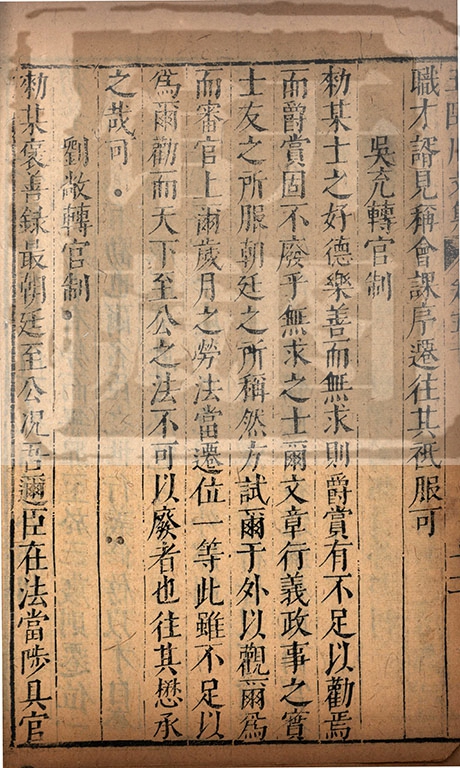 職才諝見稱會課序遷往其祗服可
吳充轉官制
勑某士之好德樂善而無求則爵賞有不足以勸焉
而爵賞固不廢乎無求之士爾文章行義政事之實
士友之所服朝廷之所稱然方試爾于外以觀爾爲
而審官上爾歲月之勞法當遷位一等此雖不足以
爲爾勸而天下至公之法不可以廢者也往其懋承
之哉可
劉敞轉官制
勑某褒善錄最朝廷至公况吾邇臣在法當陟具官